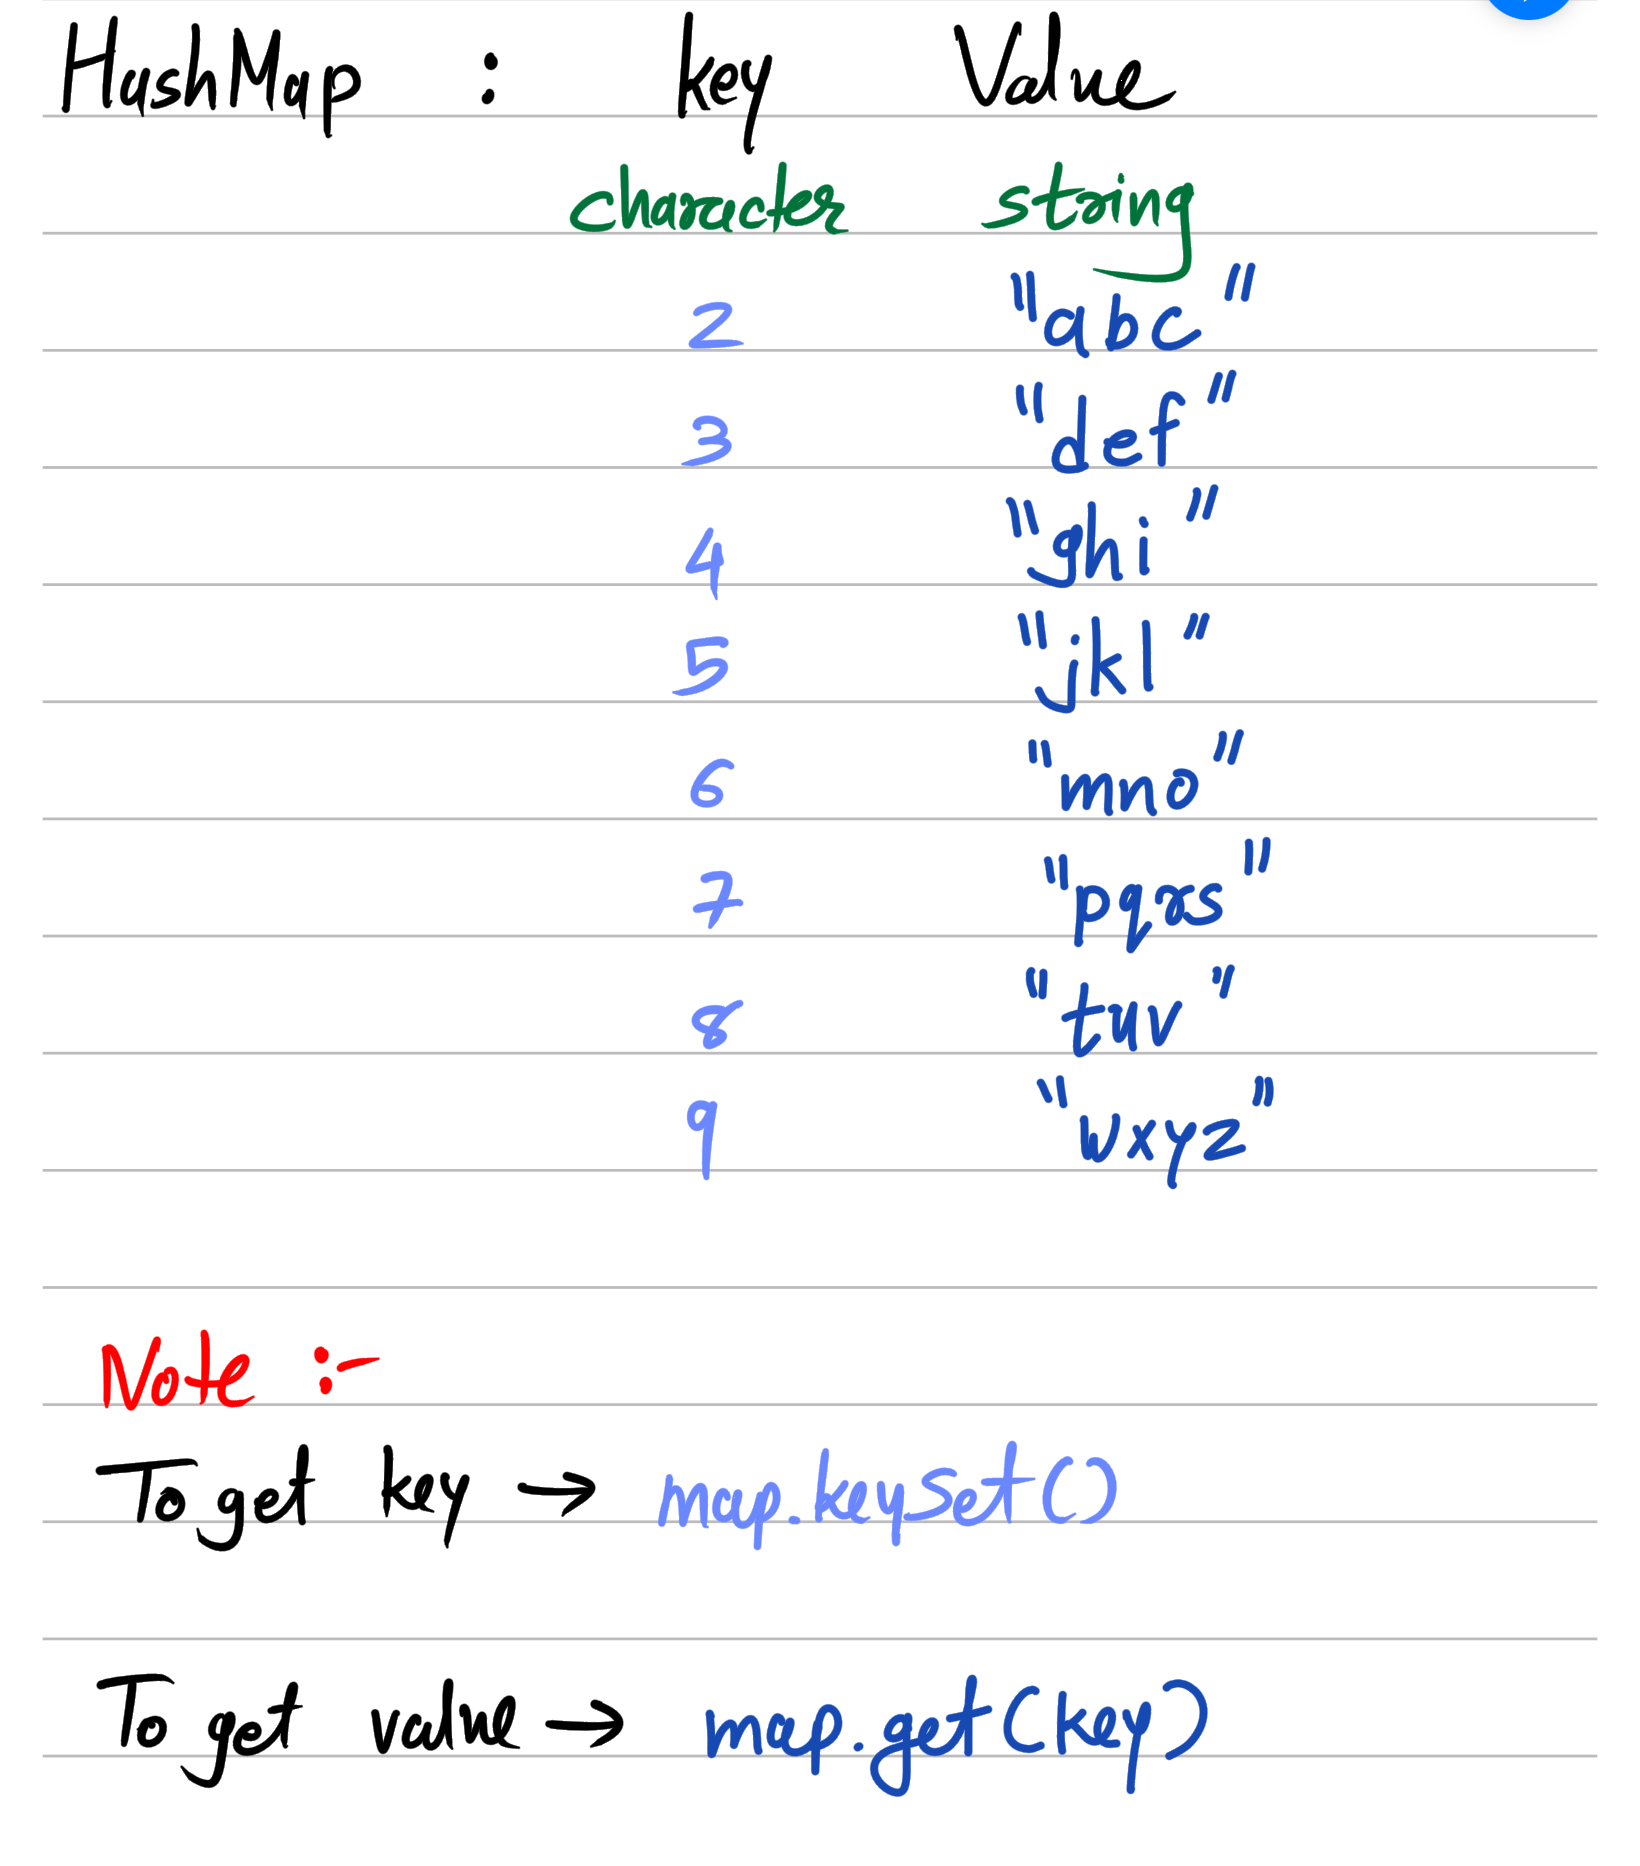 HashMap : key Value
character string
2 "abc"
3 "def"
4 "ghi"
5 "jkl"
6 "mno"
7 "pqrs"
8 "tuv"
9 "wxyz"
Note :-
To get key → map.keyset()
To get value → map.get(key)